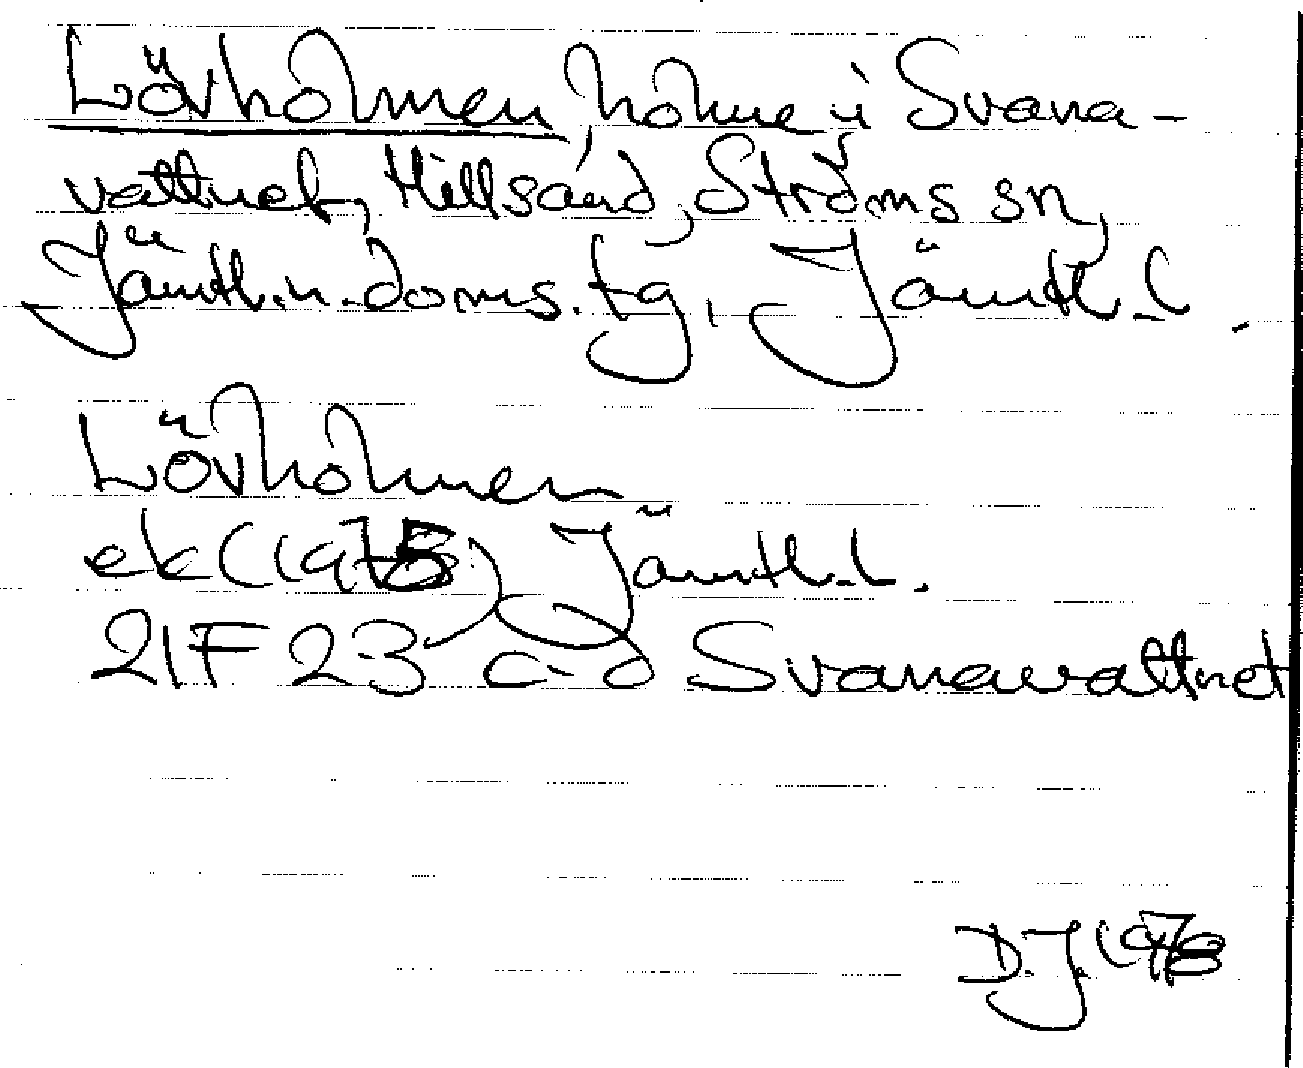 Lövholmen, holme i Svana-
vattnet, Hillsand, Ströms sn,
Jämtl.n.doms.tg, Jämtl.l.
Lövholmen
ek (1975) Jämtl.l.
21F 23 c-d Svanavattnet
D.J. 1978